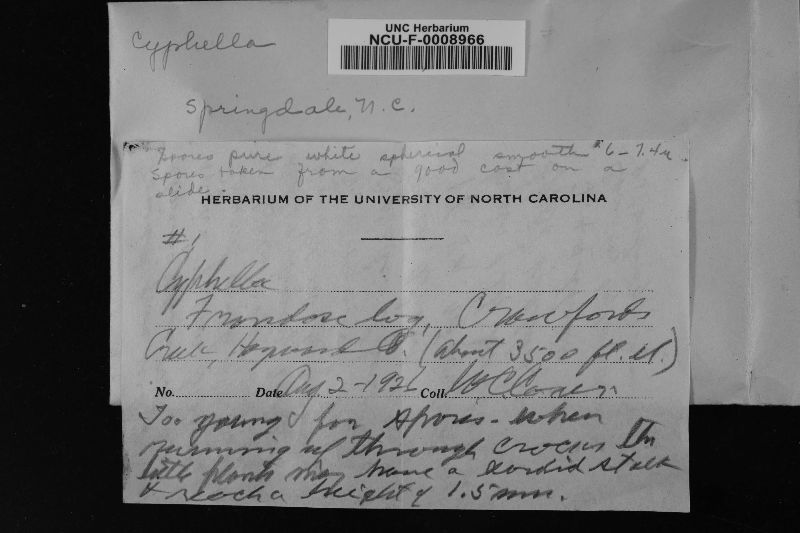 UNC Herbarium
NCU-F-0008966
Cyphella
Springdale, N.C.
Spores pure white spherical smooth 6-7.4µ
Spores taken from a good cast on a
slide.
HERBARIUM OF THE UNIVERSITY OF NORTH CAROLINA
#1
Cyphella
Frondose log, Crawfords
Creek, Haywood Co. (about 3500 ft. el.)
No. Date Aug 2-1926 Coll. W C Coker
Too young for spores - when
running up through crocus the
little plants may have a sordid stalk
& reach a height of 1.5 mm.